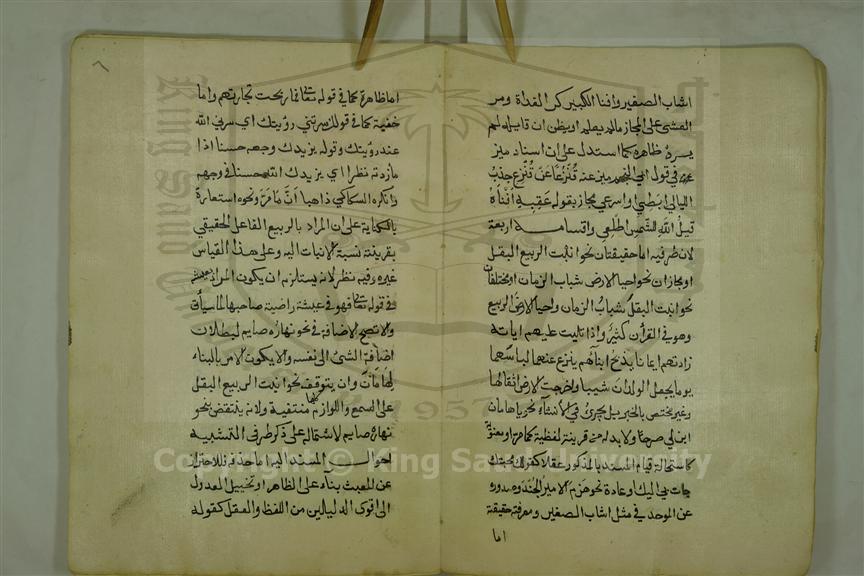 اشاب الصغير وافنا الكبير كر الغداة ومر
العشي على المجاز مالم يعلم او يظن ان قايله لم
يرد ظاهره كما استدل على ان اسناد ميز
في قول ابي النجم ميز عنه قُنْزُعًا عَنْ قُنْزُعِ جذبُ
الليالي ابطئي واسرعي مجاز بقوله عقيبه افناهُ
قيلُ اللهِ للشمس اطلعي واقسامه اربعة
لان طرفيه اما حقيقتان نحو انبت الربيع البقل
او مجازان نحو احيا الارض شباب الزمان او مختلفان
نحو انبت البقل شبابُ الزمان واحيا الارض الربيع
وهو في القرآن كثيرٌ واذا تليت عليهم اياته
زادتهم ايمانا يذبح ابناهم ينزع عنهما لباسهما
يوما يجعل الولدان شيبا واخرجت الارض اثقالها
وغير مختص بالخبر بل يجري في الأنشآء نحو ياهامان
ابن لي صرحًا ولابد له من قرينة لفظية كما مر او معنوية
كاستحالة قيام المسند بالمذكور عقلا كقولك محبتك
جات بي اليك او عادة نحو هزم الامير الجند وصدوره
عن الموحد في مثل اشاب الصغير ومعرفة حقيقته
اما
٧
اما ظاهرة كما في قوله تعالى فما ربحت تجارتهم واما
خفية كما في قولك سرتني رؤيتك اي سرني الله
عند رؤيتك وقوله يزيدك وجهه حسنا اذا
مازدته نظرا اي يزيدك الله حسنا في وجهه
وانكره السكاكي ذاهبا أنَّ مَا مَرَّ ونحوه استعارة
بالكناية على ان المراد بالربيع الفاعل الحقيقي
بقرينة نسبة الانبات اليه وعلى هذا القياس
غيره وفيه نظر لانه يستلزم ان يكون المراد بعيشة
في قوله تعالى فهو في عيشة راضية صاحبها لما سيأتي
والا تصح الاضافة في نحو نهاره صايم لبطلان
اضافة الشئ الى نفسه والا يكون الامر بالبناء
لِهَامَانَ وان يتوقف نحو انبت الربيع البقل
على السمع واللوازم كلها منتفية ولانه ينتقض بنحو
نهاره صايم لاشتماله على ذكر طرفي التشبيه
احوال المسند اليه اما حذفه فللاحتراز
عن العبث بناء على الظاهر او تخييل العدول
الى اقوى الدليلين من اللفظ والعقل كقوله
Copyright © King Saud University
1957